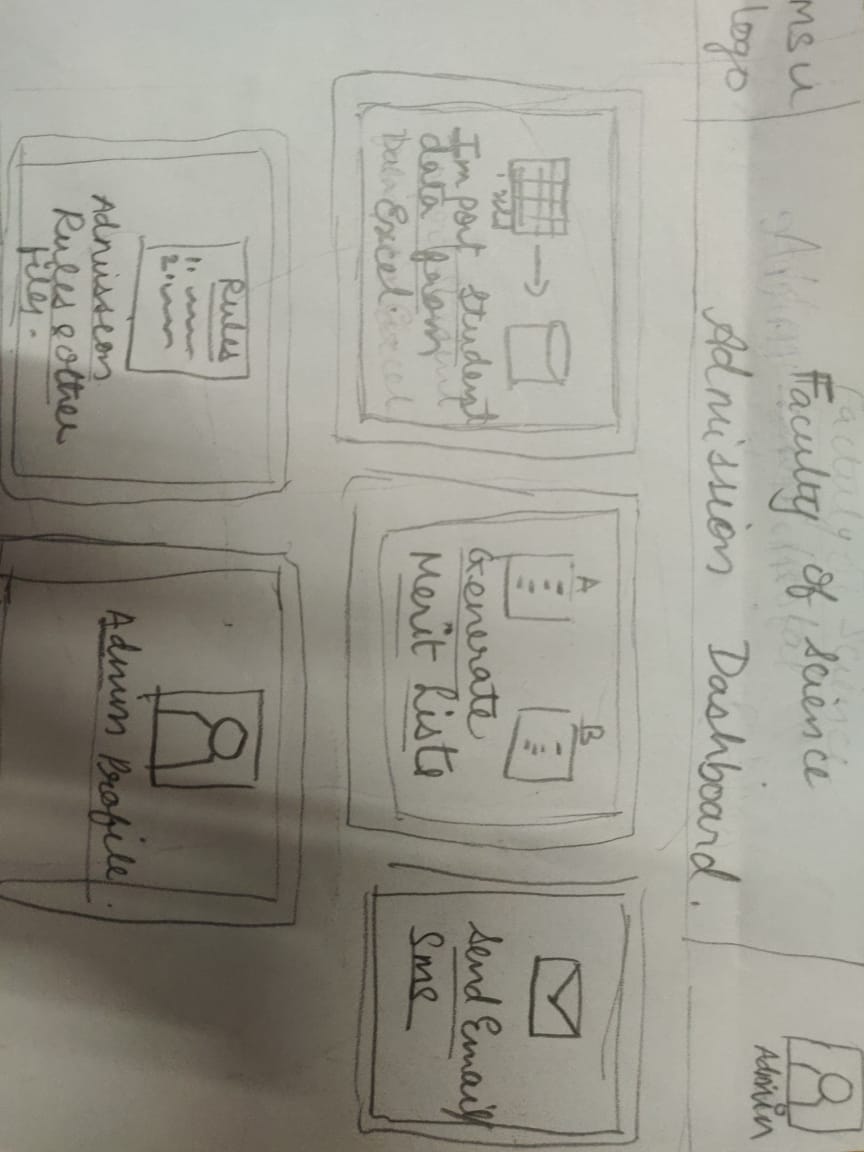 MSU
logo
Faculty of Science
Admission Dashboard.
Admin
Import student
data from
Excel
A
B
Generate
Merit Lists
Send Email
Sms
Rules
1:
2:
Admission
Rules & other
files.
Admin Profile.